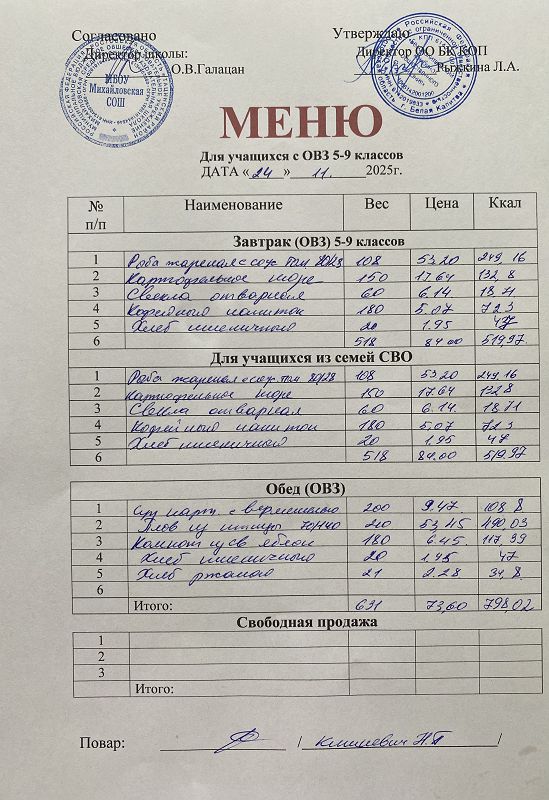 Согласовано Утверждаю
Директор школы: Директор ОО БК КОП
О.В.Галацан Рыжкина Л.А.
МБОУ
Михайловская
СОШ
г. Белая Калитва
МЕНЮ
Для учащихся с ОВЗ 5-9 классов
ДАТА «24» 11. 2025г.
№ п/п Наименование Вес Цена Ккал
Завтрак (ОВЗ) 5-9 классов
1 Рыба жареная с соус том 80/28 108 53.20 249 16
2 Картофельное пюре 150 17.64 132 8
3 Свекла отварная 60 6.14 18.71
4 Кофейный напиток 180 5.07 72.3
5 Хлеб пшеничного 20 1.95 47
6 518 84 00 519,97
Для учащихся из семей СВО
1 Рыба жареная с соус том 80/28 108 53 20 249 16
2 Картофельное пюре 150 17.64 132.8
3 Свекла отварная 60 6.14. 18.71
4 Кофейный напиток 180 5,07 72.3
5 Хлеб пшеничного 20 1.95 47
6 518 84,00 519,97
Обед (ОВЗ)
1 Суп карт. с вермишелью 200 9.47. 108 8
2 Плов из птицы 70/140 210 53,45 490,03
3 Компот из св яблок 180 6.45. 117.39
4 Хлеб пшеничного 20 1.95 47
5 Хлеб ржаного 21 2.28 34,8
6
Итого: 631 73,60 798,02
Свободная продажа
1
2
3
Итого:
Повар: / Климевич Н.П /